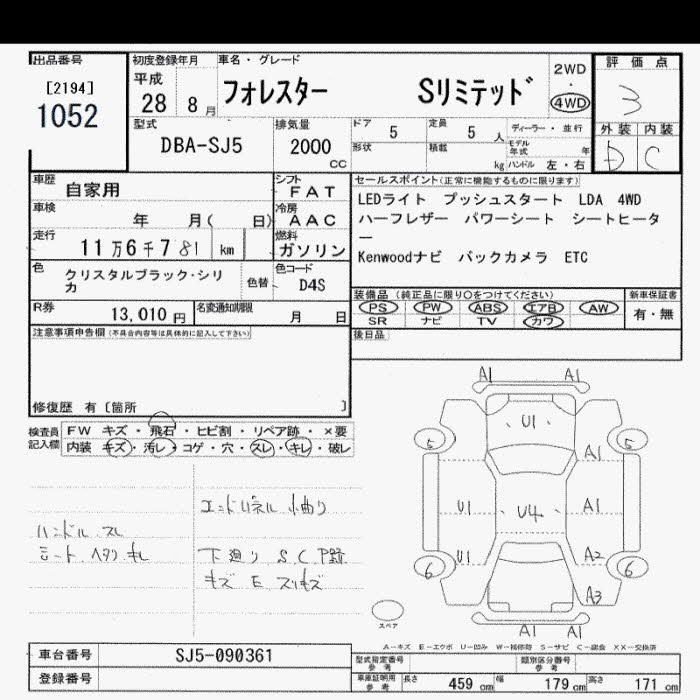 出品番号
[2194]
1052
初度登録年月
平成
28 8 月
車名・グレード
フォレスター Sリミテッド
2WD
・
4WD
評価点
3
外装 内装
D C
型式
DBA-SJ5
排気量
2000
CC
ドア
5
定員
5 人
形状
積載
kg
ディーラー・並行
モデル年式 年
ハンドル 左・右
車歴
自家用
シフト
FAT
車検
年 月( 日)
冷房
AAC
走行
11万6千781 km
燃料
ガソリン
色
クリスタルブラック・シリカ
色替
色コード
D4S
R券
13,010 円
名変通知期限
月 日
セールスポイント(正常に機能するものに限ります)
LEDライト プッシュスタート LDA 4WD
ハーフレザー パワーシート シートヒータ
ー
Kenwoodナビ バックカメラ ETC
装備品 (純正品に限り○をつけてください)
PS PW ABS エアB AW
SR ナビ TV カワ
新車保証書
有・無
後日品
注意事項申告欄(不具合内容等は具体的に記入して下さい)
修復歴 有〔箇所 〕
検査員
記入欄
FW キズ・飛石・ヒビ割・リペア跡・×要
内装 キズ・汚レ・コゲ・穴・スレ・キレ・破レ
ハンドル スレ
シート ヘタリ キレ
エンドパネル 小曲り
下廻り S.C.P跡
キズ E スリキズ
A1 A1
U1
5 5
A1
U1 U4 A1
U1 A2
6 6
A3
A1 A1
スペア
A−キズ E−エクボ U−凹み W−補修跡 S−サビ C−腐食 XX−交換済
車台番号
SJ5-090361
登録番号
型式指定番号
参考
類別区分番号
参考
車庫証明用
参考
長さ 459 cm 幅 179 cm 高さ 171 cm